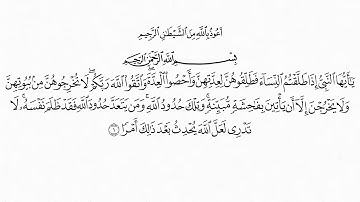 أَعُوذُ بِاللَّهِ مِنَ الشَّيْطَانِ الرَّجِيمِ
بِسْمِ اللَّهِ الرَّحْمَٰنِ الرَّحِيمِ
يَٰٓأَيُّهَا ٱلنَّبِيُّ إِذَا طَلَّقْتُمُ ٱلنِّسَآءَ فَطَلِّقُوهُنَّ لِعِدَّتِهِنَّ وَأَحْصُوا۟ ٱلْعِدَّةَ ۖ وَٱتَّقُوا۟ ٱللَّهَ رَبَّكُمْ ۖ لَا تُخْرِجُوهُنَّ مِنۢ بُيُوتِهِنَّ
وَلَا يَخْرُجْنَ إِلَّآ أَن يَأْتِينَ بِفَٰحِشَةٍ مُّبَيِّنَةٍ ۚ وَتِلْكَ حُدُودُ ٱللَّهِ ۚ وَمَن يَتَعَدَّ حُدُودَ ٱللَّهِ فَقَدْ ظَلَمَ نَفْسَهُۥ ۚ لَا
تَدْرِى لَعَلَّ ٱللَّهَ يُحْدِثُ بَعْدَ ذَٰلِكَ أَمْرًا ١